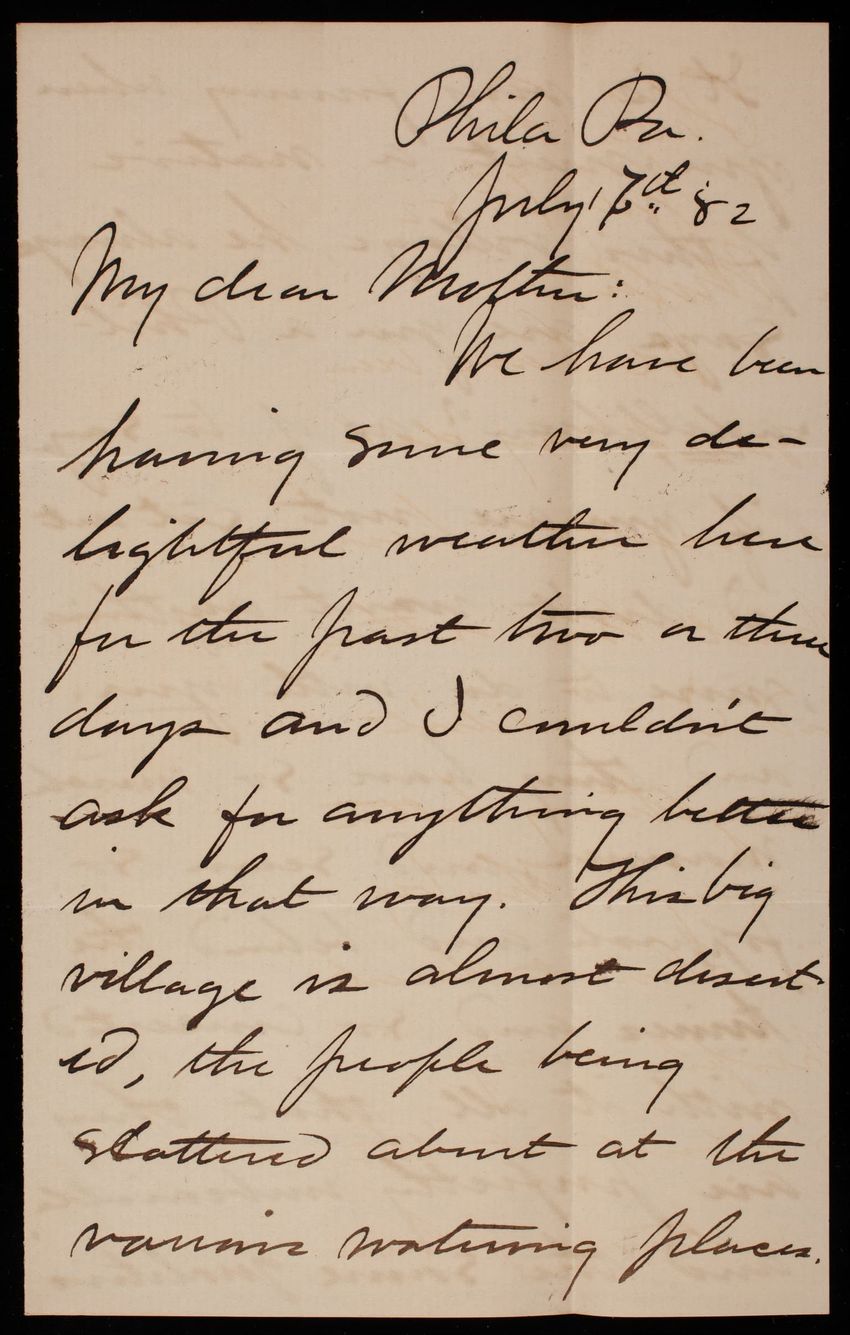 Phila Pa.
July 82
My dear Mother:
We have been
having some very de-
lightful weather here
for the past two or three
days and I couldn't
ask for anything better
in that way. This big
village is almost desert-
ed, the people being
scattered about at the
various watering places.